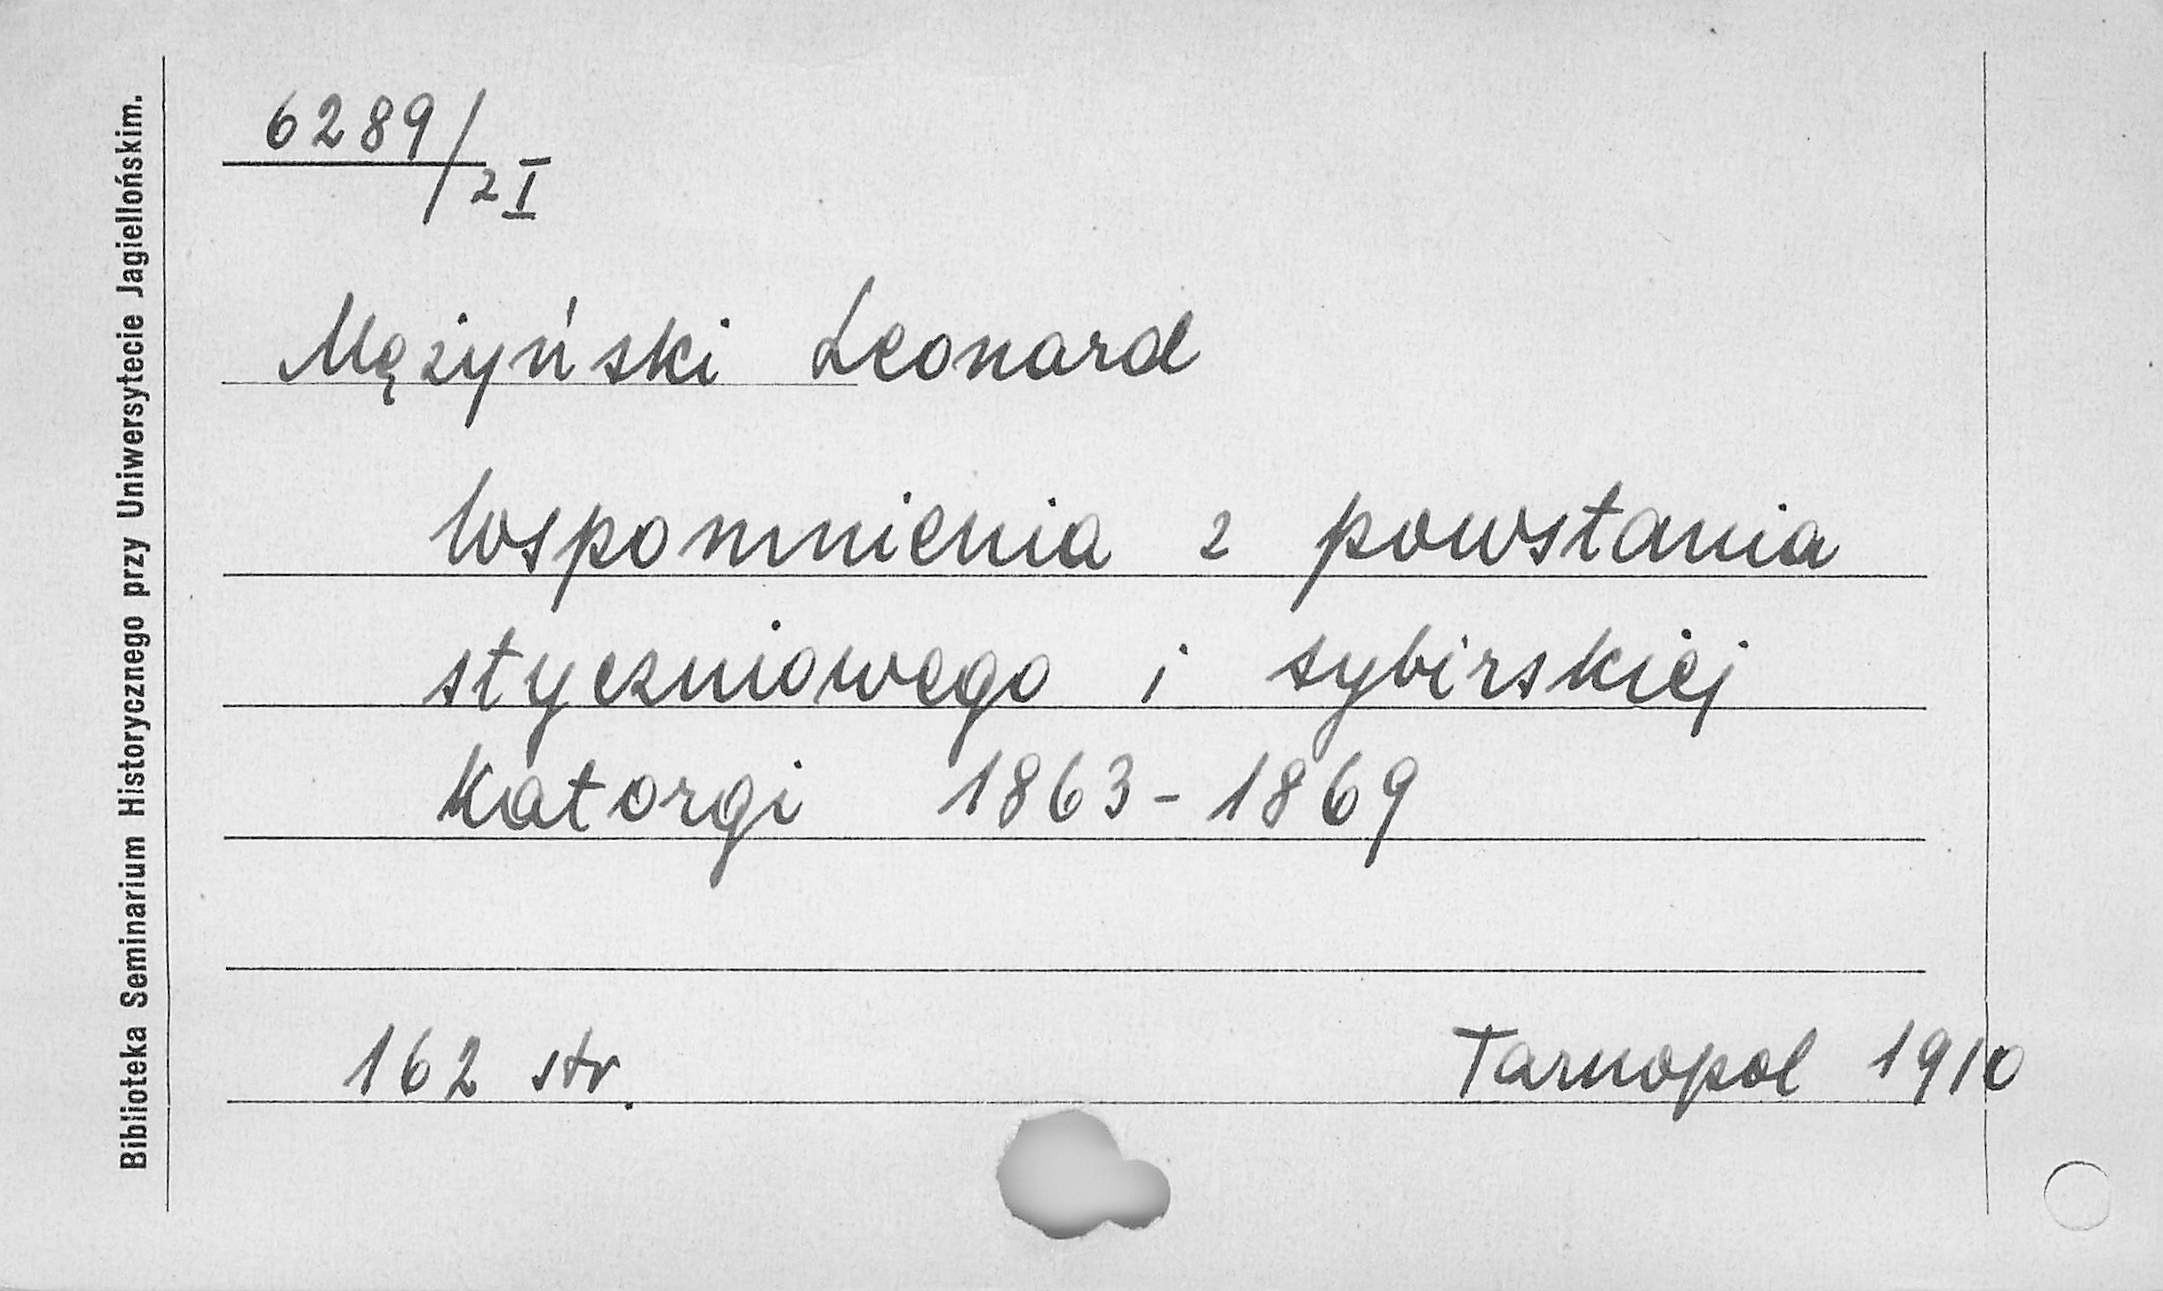 6289/2 I
Mężyński Leonard
Wspomnienia z powstania
styczniowego i sybirskiej
Katorgi 1863-1869
162 str.
Tarnopol 1910
Biblioteka Seminarium Historycznego przy Uniwersytecie Jagiellońskim.